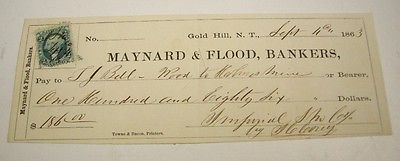 No. Gold Hill, N. T., Sept 4th 1863
MAYNARD & FLOOD, BANKERS,
Maynard & Flood, Bankers.
Pay to S J Bell – Wood & or Bearer,
One Hundred and Eighty Six " Dollars.
$186.00 Imperial
by
Towne & Bacon, Printers.